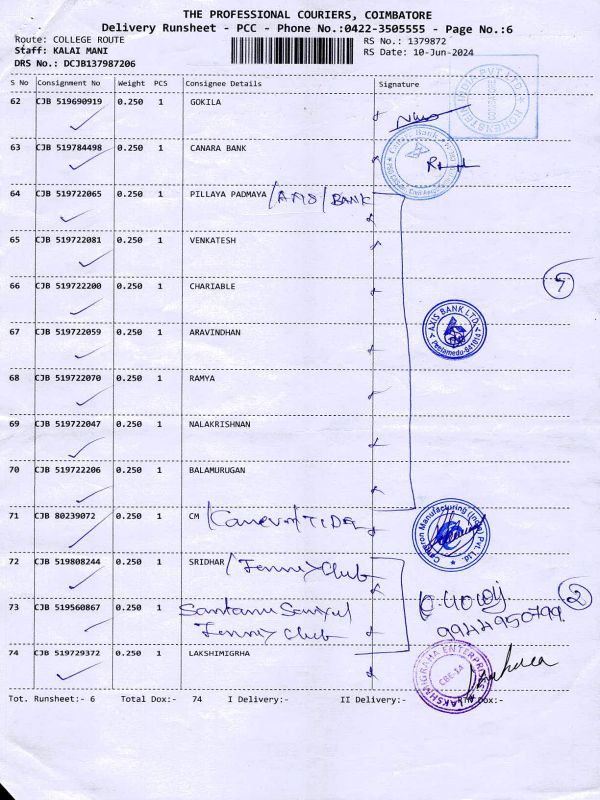 THE PROFESSIONAL COURIERS, COIMBATORE
Delivery Runsheet - PCC - Phone No.:0422-3505555 - Page No.:6
Route: COLLEGE ROUTE
RS No.: 1379872
Staff: KALAI MANI
RS Date: 10-Jun-2024
DRS No.: DCJB137987206
S No Consignment No Weight PCS Consignee Details Signature
62 CJB 519690919 0.250 1 GOKILA
63 CJB 519784498 0.250 1 CANARA BANK
64 CJB 519722065 0.250 1 PILLAYA PADMAYA /AXIS/BANK
65 CJB 519722081 0.250 1 VENKATESH
66 CJB 519722200 0.250 1 CHARIABLE
9
AXIS BANK LTD.
Peelamedu-641014
67 CJB 519722059 0.250 1 ARAVINDHAN
68 CJB 519722070 0.250 1 RAMYA
69 CJB 519722047 0.250 1 NALAKRISHNAN
70 CJB 519722206 0.250 1 BALAMURUGAN
71 CJB 80239072 0.250 1 CM /Cameron/TIDEL
Cameron Manufacturing (India) Pvt. Ltd
72 CJB 519808244 0.250 1 SRIDHAR /Jenny Club
2
73 CJB 519560867 0.250 1 Santanu
Jenny Club
9944950799
74 CJB 519729372 0.250 1 LAKSHMIMIGRHA
LAKSHMIGRAHA ENTERPRISES
CBE-14
Tot. Runsheet:- 6 Total Dox:- 74 I Delivery:- II Delivery:- Dox:-